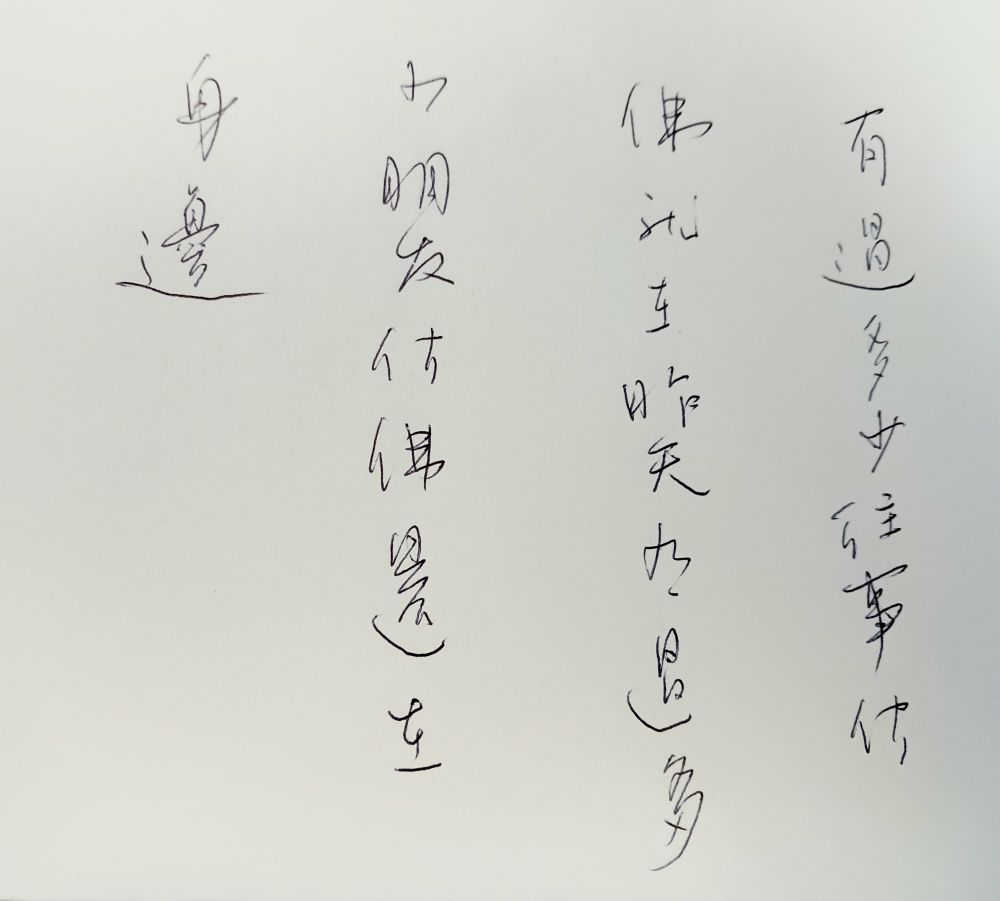 有過多少往事仿
佛就在昨天有過多
少朋友仿佛還在
身邊